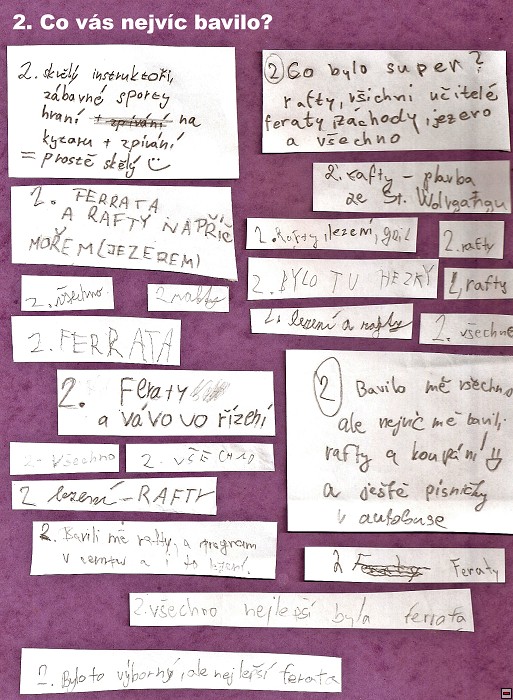 2. Co vás nejvíc bavilo?
2. skvělý instruktoři,
zábavné sporty
hraní + zpívání na
kytaru + zpívání
= prostě skělý
2 Co bylo super?
rafty, všichni učitelé
feraty, záchody, jezero
a všechno
2. rafty – plavba
ze St. Wolvgangu
2. FERRATA
A RAFTY NAPŘÍČ
MOŘEM (JEZEREM)
2. Rafty, lezení,
2. rafty
2. BYLO TU HEZKY
2, rafty
2. všechno
2 rafty
2. lezení a rafty
2. všechno
2. FERRATA
2. Feraty
a vávovo řízení
2 Bavilo mě všechno
ale nejvíc mě bavili
rafty a koupání!
a ještě písničky
v autobuse
2 – všechno
2. VŠECHNO
2 lezení – RAFTY
2. Bavili mě rafty, a program
a i to lezení.
2 Feraty Feraty
2. všechno nejlepší byla ferrata
2. Bylo to výborný, ale nejlepší ferata